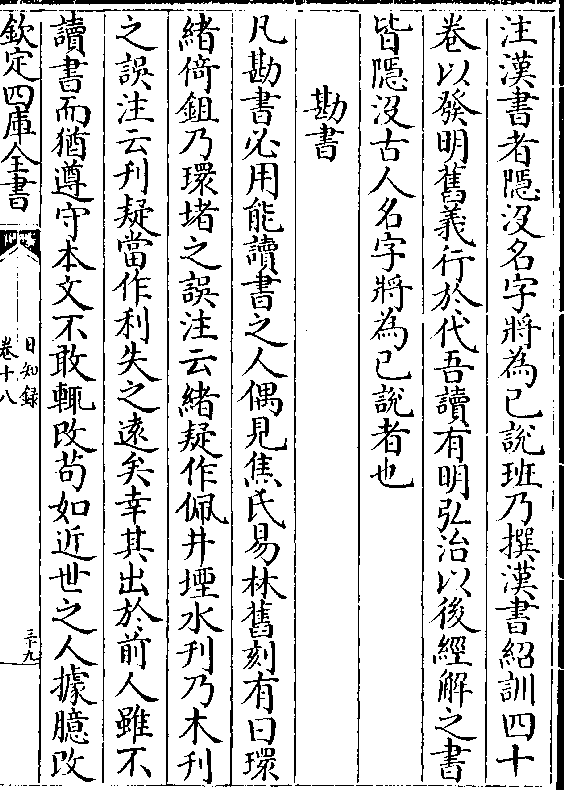 注漢書者隱沒名字將為已說班乃撰漢書紹訓四十
卷以發明舊義行於代吾讀有明弘治以後經解之書
皆隱沒古人名字將為已說者也
勘書
凡勘書必用能讀書之人偶見焦氏易林舊刻有曰環
緒倚鉏乃環堵之誤注云緒疑作佩井堙水刊乃木刊
之誤注云刋疑當作利失之遠矣幸其出於前人雖不
讀書而猶遵守本文不敢輒改苟如近世之人據臆改
欽定四庫全書
日知錄
卷十八
三十九